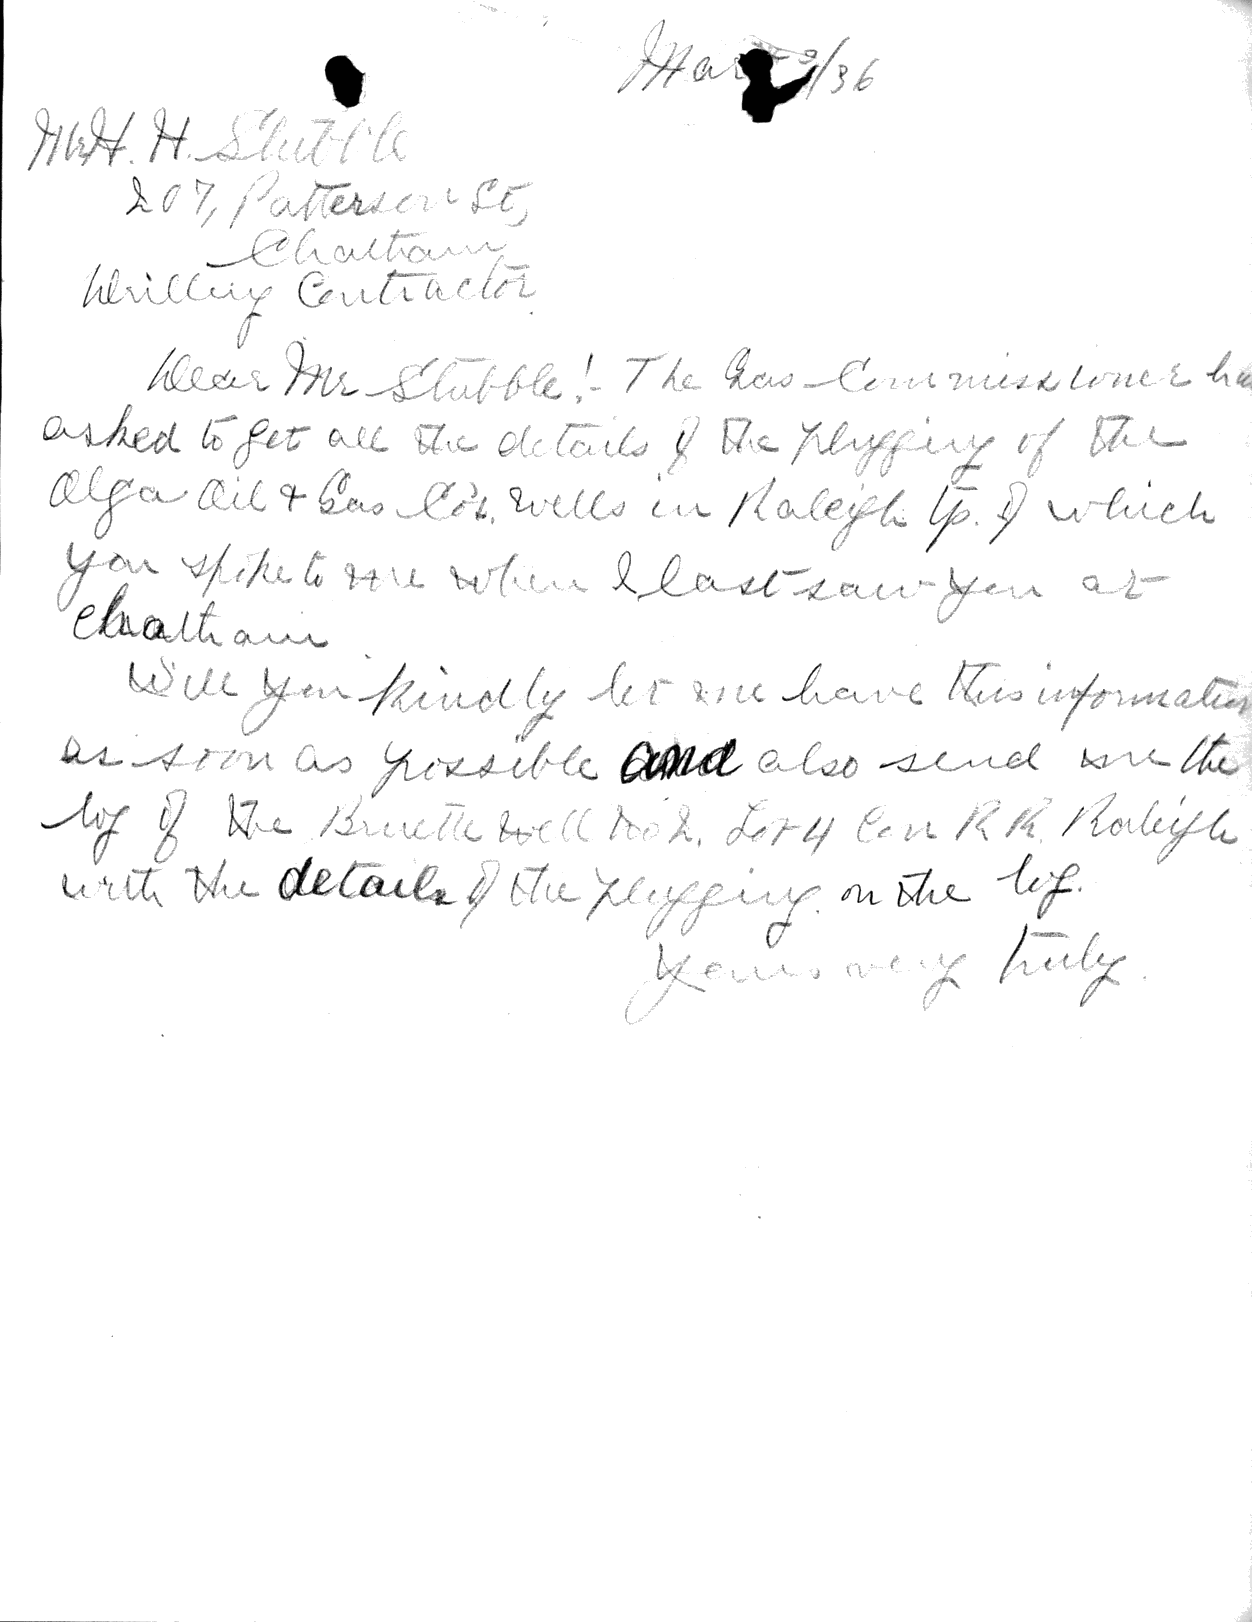 Mar /36
Mr H. H. Stubble
207, Patterson St,
Chatham
Drilling Contractor
Dear Mr Stubble! - The Gas Commissioner ha
asked to get all the details of the plugging of the
Olga Oil & Gas Co's. wells in Raleigh Tp. of which
you spoke to me when I last saw you at
Chatham
Will you kindly let me have this information
as soon as possible and also send me the
log of the well No 2. Lot 4 Con R.R. Raleigh
with the details of the plugging on the log.
Yours very truly.